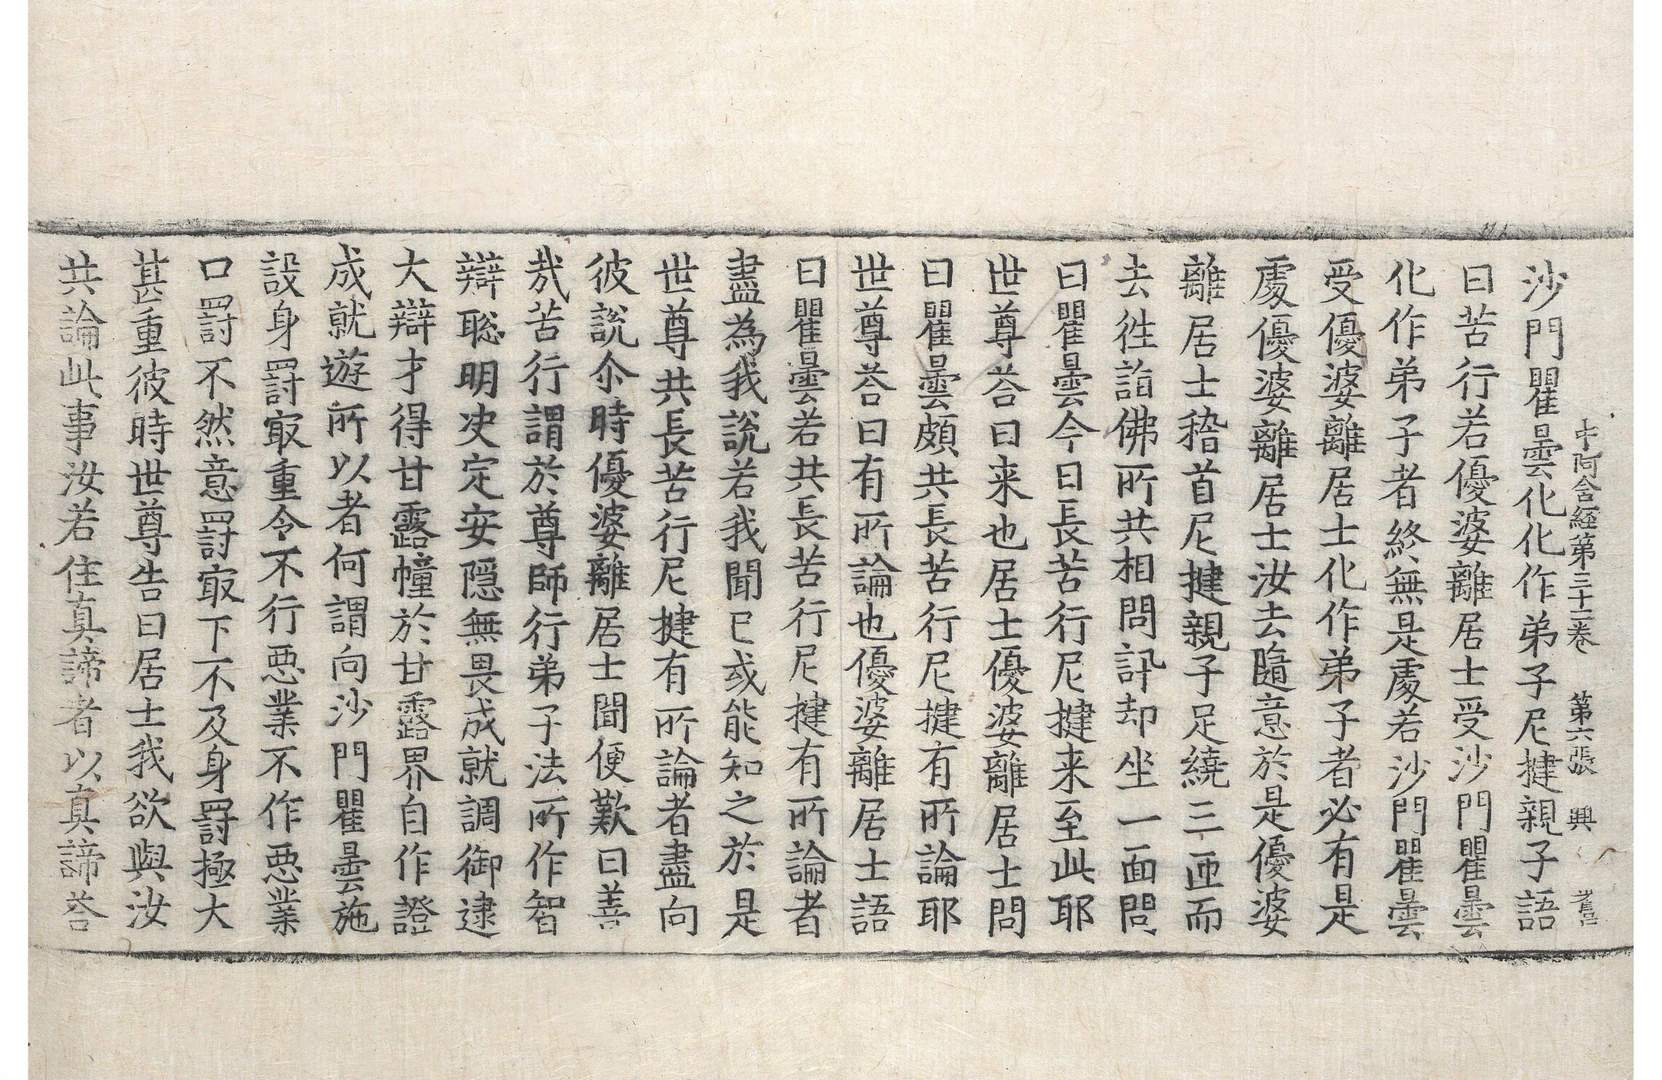 中阿含經第三十二卷 第六張 興
沙門瞿曇化化作弟子尼揵親子語
曰苦行若優婆離居士受沙門瞿曇
化作弟子者終無是處若沙門瞿曇
受優婆離居士化作弟子者必有是
處優婆離居士汝去隨意於是優婆
離居士稽首尼揵親子足繞三匝而
去往詣佛所共相問訊却坐一面問
曰瞿曇今日長苦行尼揵来至此耶
世尊荅曰来也居士優婆離居士問
曰瞿曇頗共長苦行尼揵有所論耶
世尊荅曰有所論也優婆離居士語
曰瞿曇若共長苦行尼揵有所論者
盡為我說若我聞已或能知之於是
世尊共長苦行尼揵有所論者盡向
彼說尒時優婆離居士聞便歎曰善
哉苦行謂於尊師行弟子法所作智
辯聡明决定安隠無畏成就調御逮
大辯才得甘露幢於甘露界自作證
成就遊所以者何謂向沙門瞿曇施
設身罰㝡重令不行惡業不作惡業
口罰不然意罰㝡下不及身罰極大
甚重彼時世尊告曰居士我欲與汝
共論此事汝若住真諦者以真諦荅